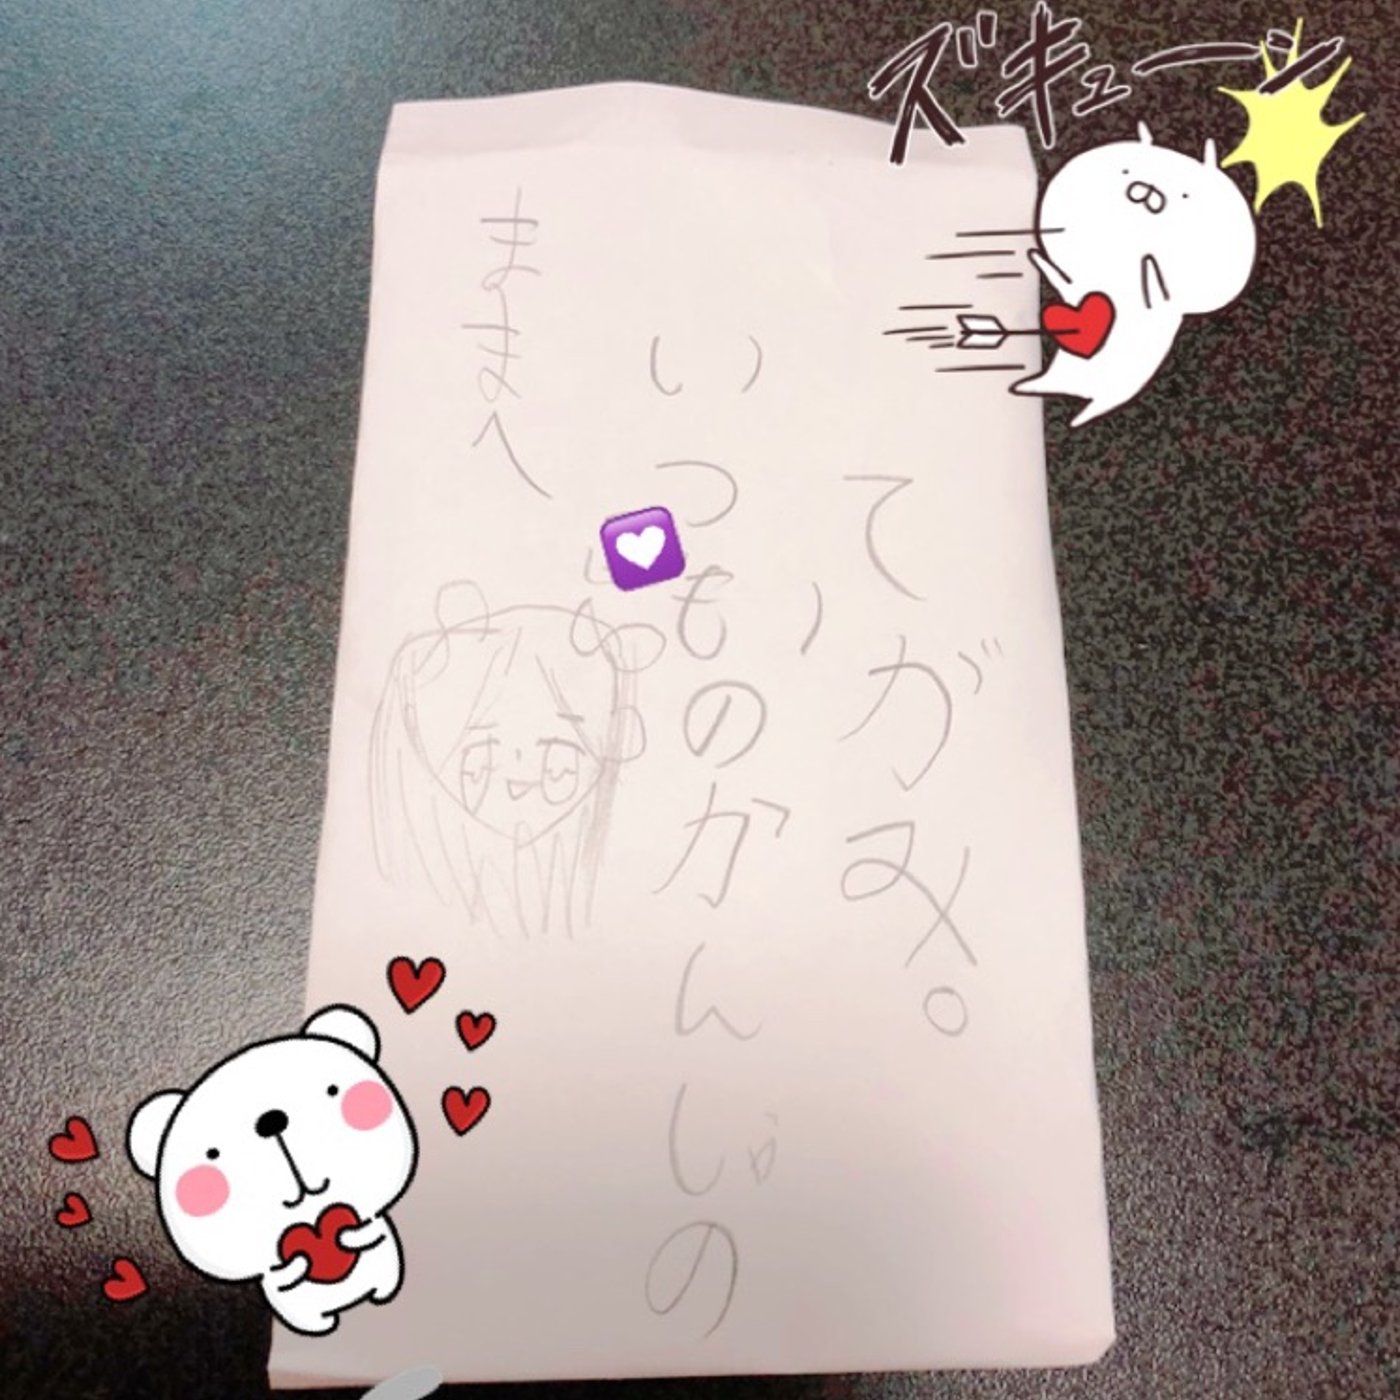 ズキューン
ままへ
いつものかんじの
てがみ。